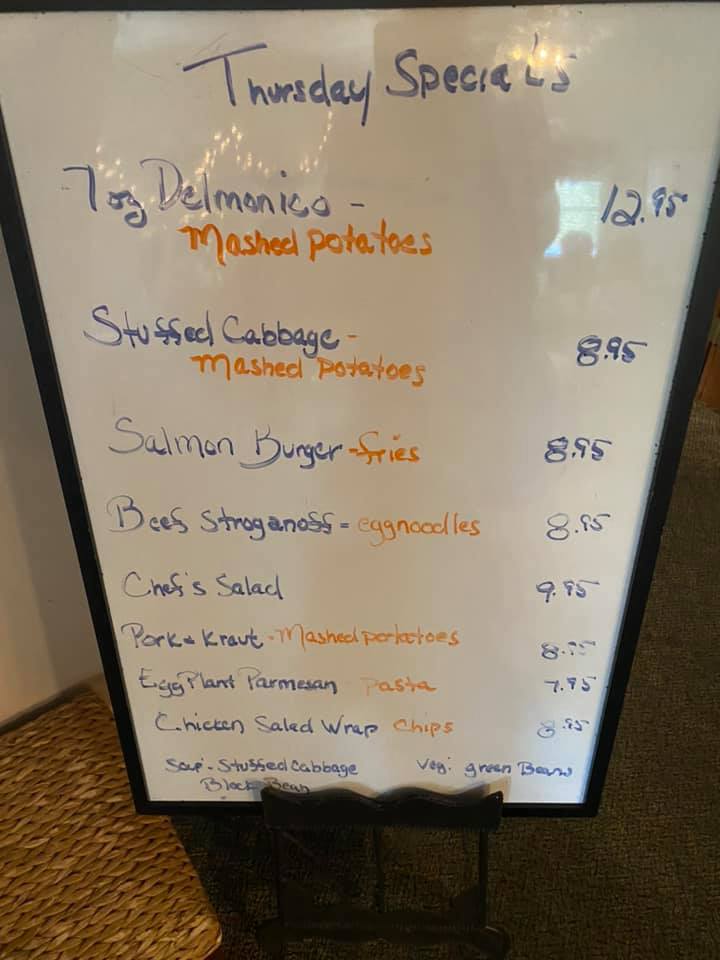 Thursday Specials
7 oz Delmonico - 12.95
Mashed potatoes
Stuffed Cabbage - 8.95
Mashed potatoes
Salmon Burger - fries 8.95
Beef Stroganoff = eggnoodles 8.95
Chef's Salad 9.95
Pork & Kraut - Mashed portatoes 8.95
EggPlant Parmesan pasta 7.95
Chicken Salad Wrap Chips 8.95
Soup - Stuffed Cabbage Veg: green Beans
Black Bean